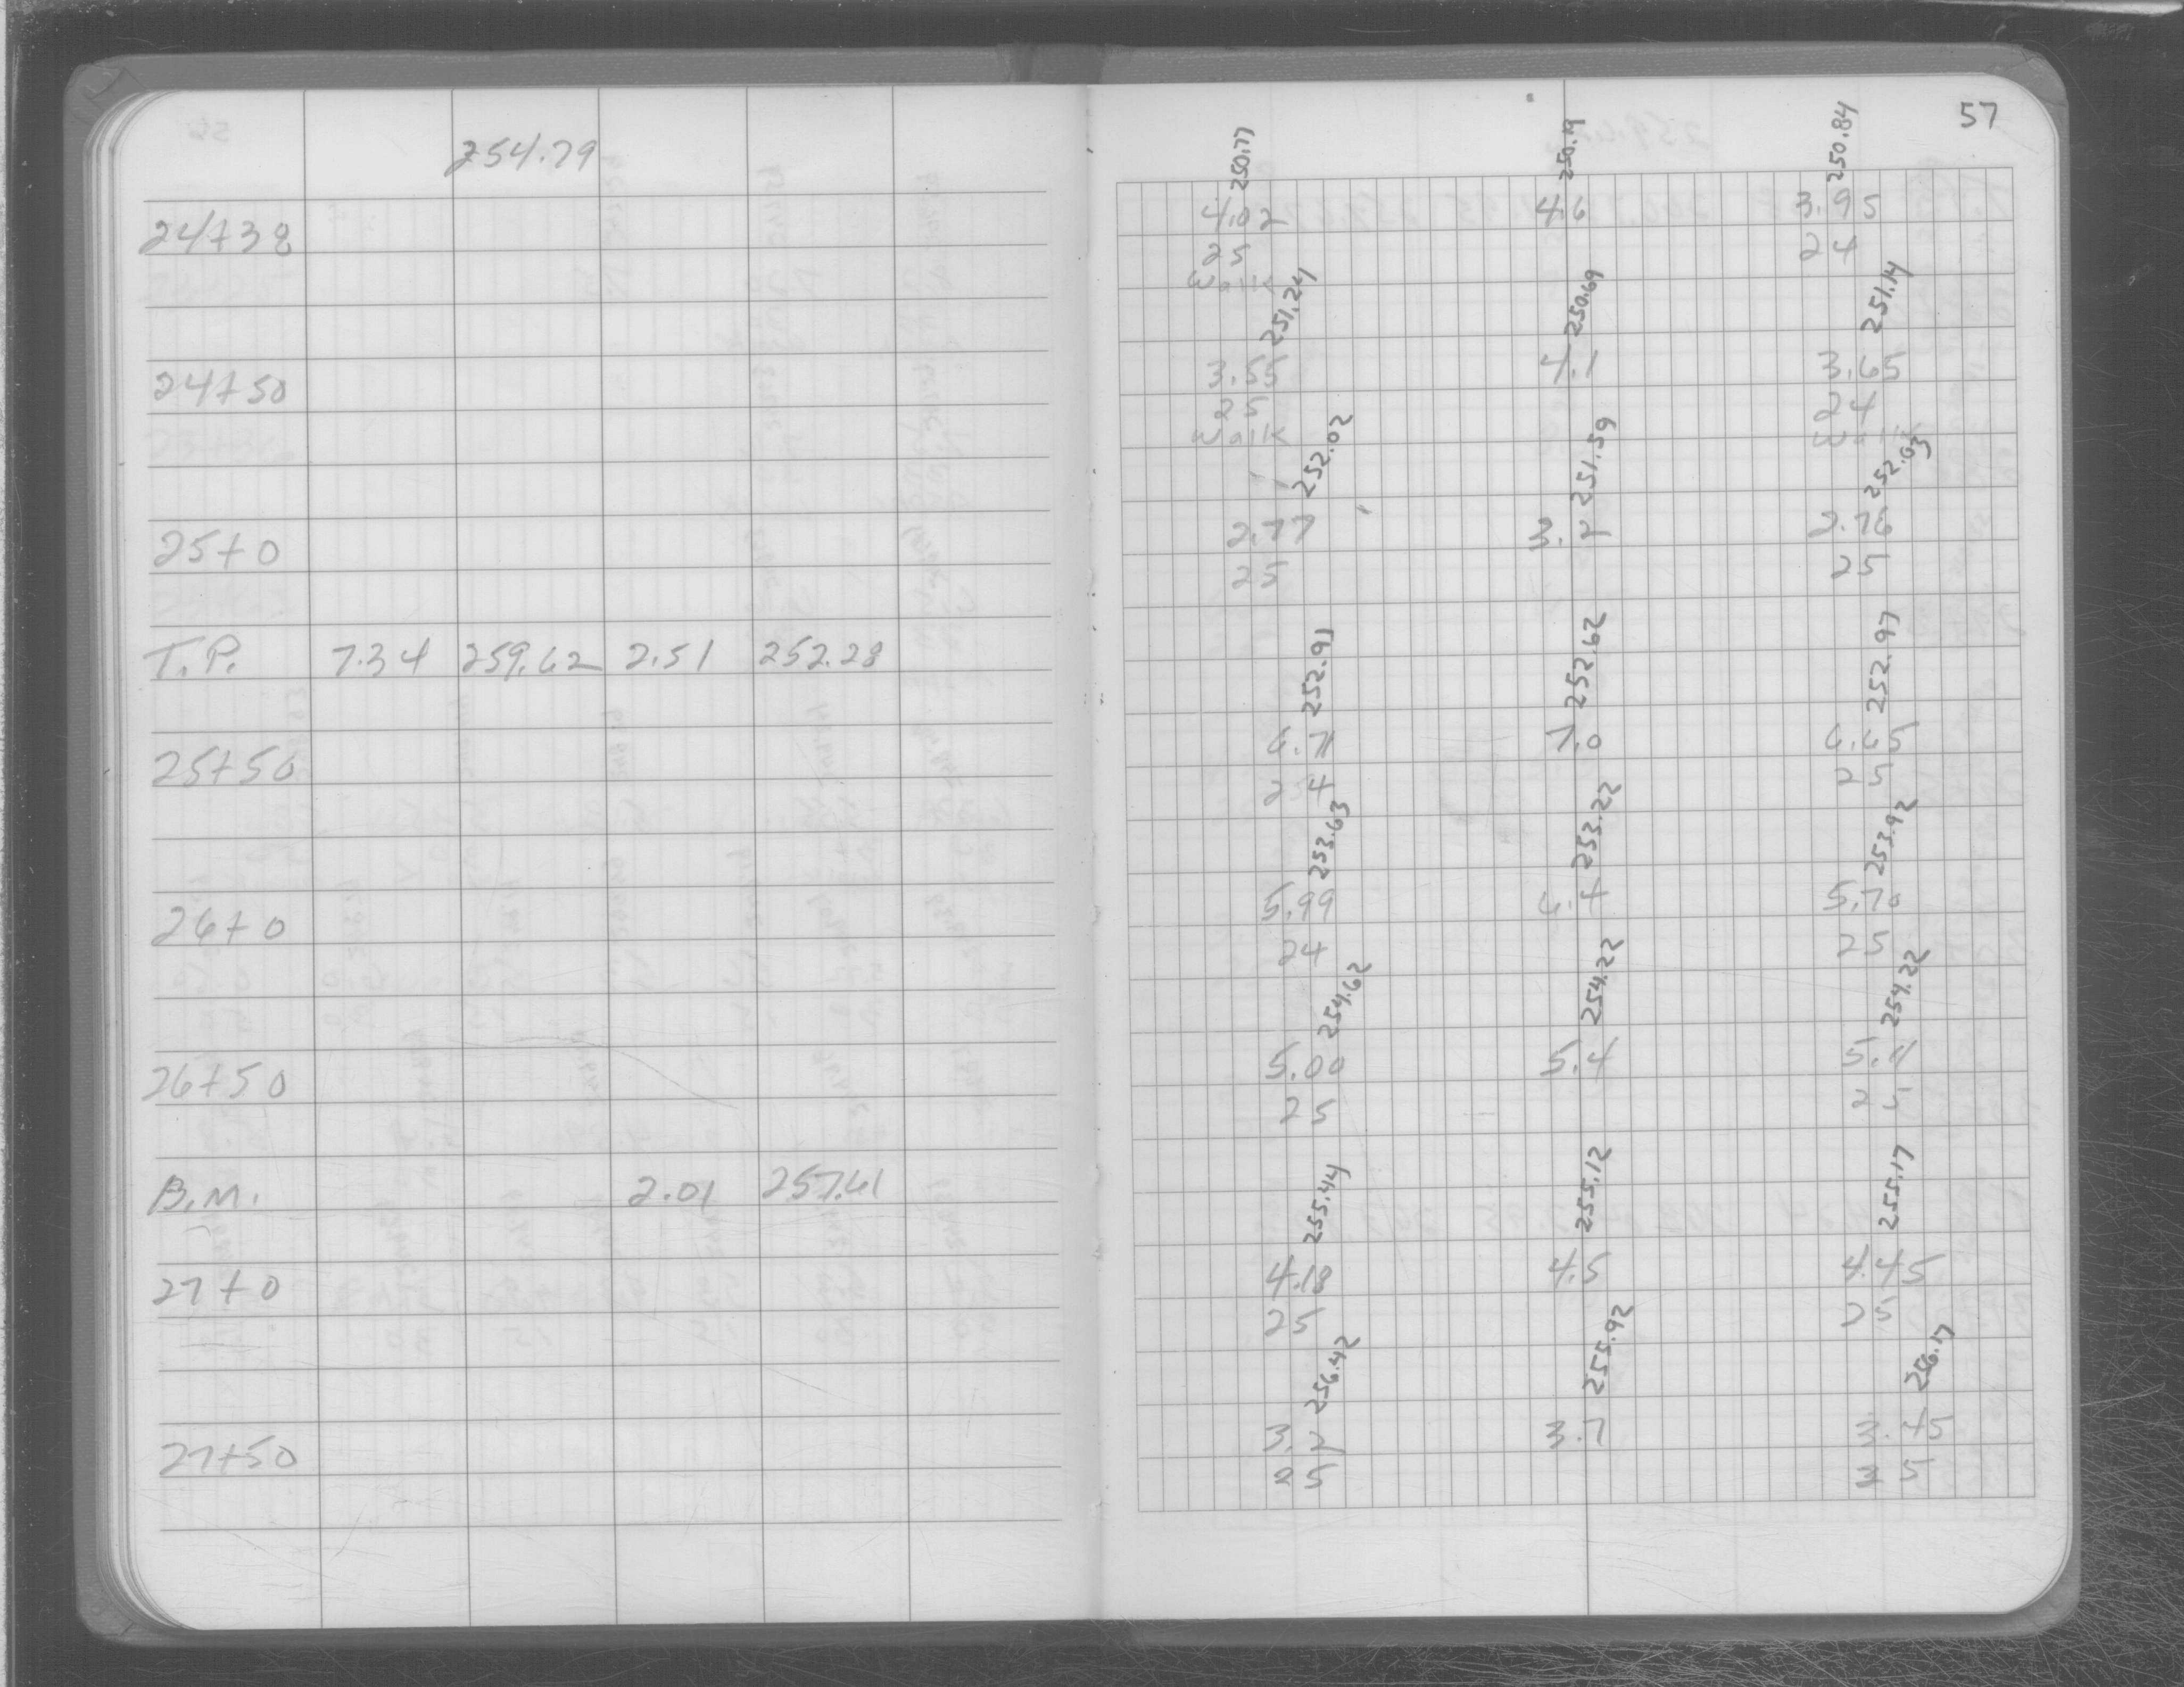 57
254.79
250.77 250.19 250.84
24+38 4.02 4.6 3.95
25 24
Walk
251.24 250.69 251.14
24+50 3.55 4.1 3.65
25 24
Walk Walk
252.02 251.59 252.03
25+0 2.77 3.2 2.76
25 25
T.P. 7.34 259.62 2.51 252.28
252.91 252.62 252.97
25+50 6.71 7.0 6.65
24 25
253.63 253.22 253.92
26+0 5.99 6.4 5.70
24 25
254.62 254.22 254.22
26+50 5.00 5.4 5.11
25 25
B.M. 2.01 257.61
255.44 255.12 255.17
27+0 4.18 4.5 4.45
25 25
256.42 255.92 256.17
27+50 3.2 3.7 3.45
25